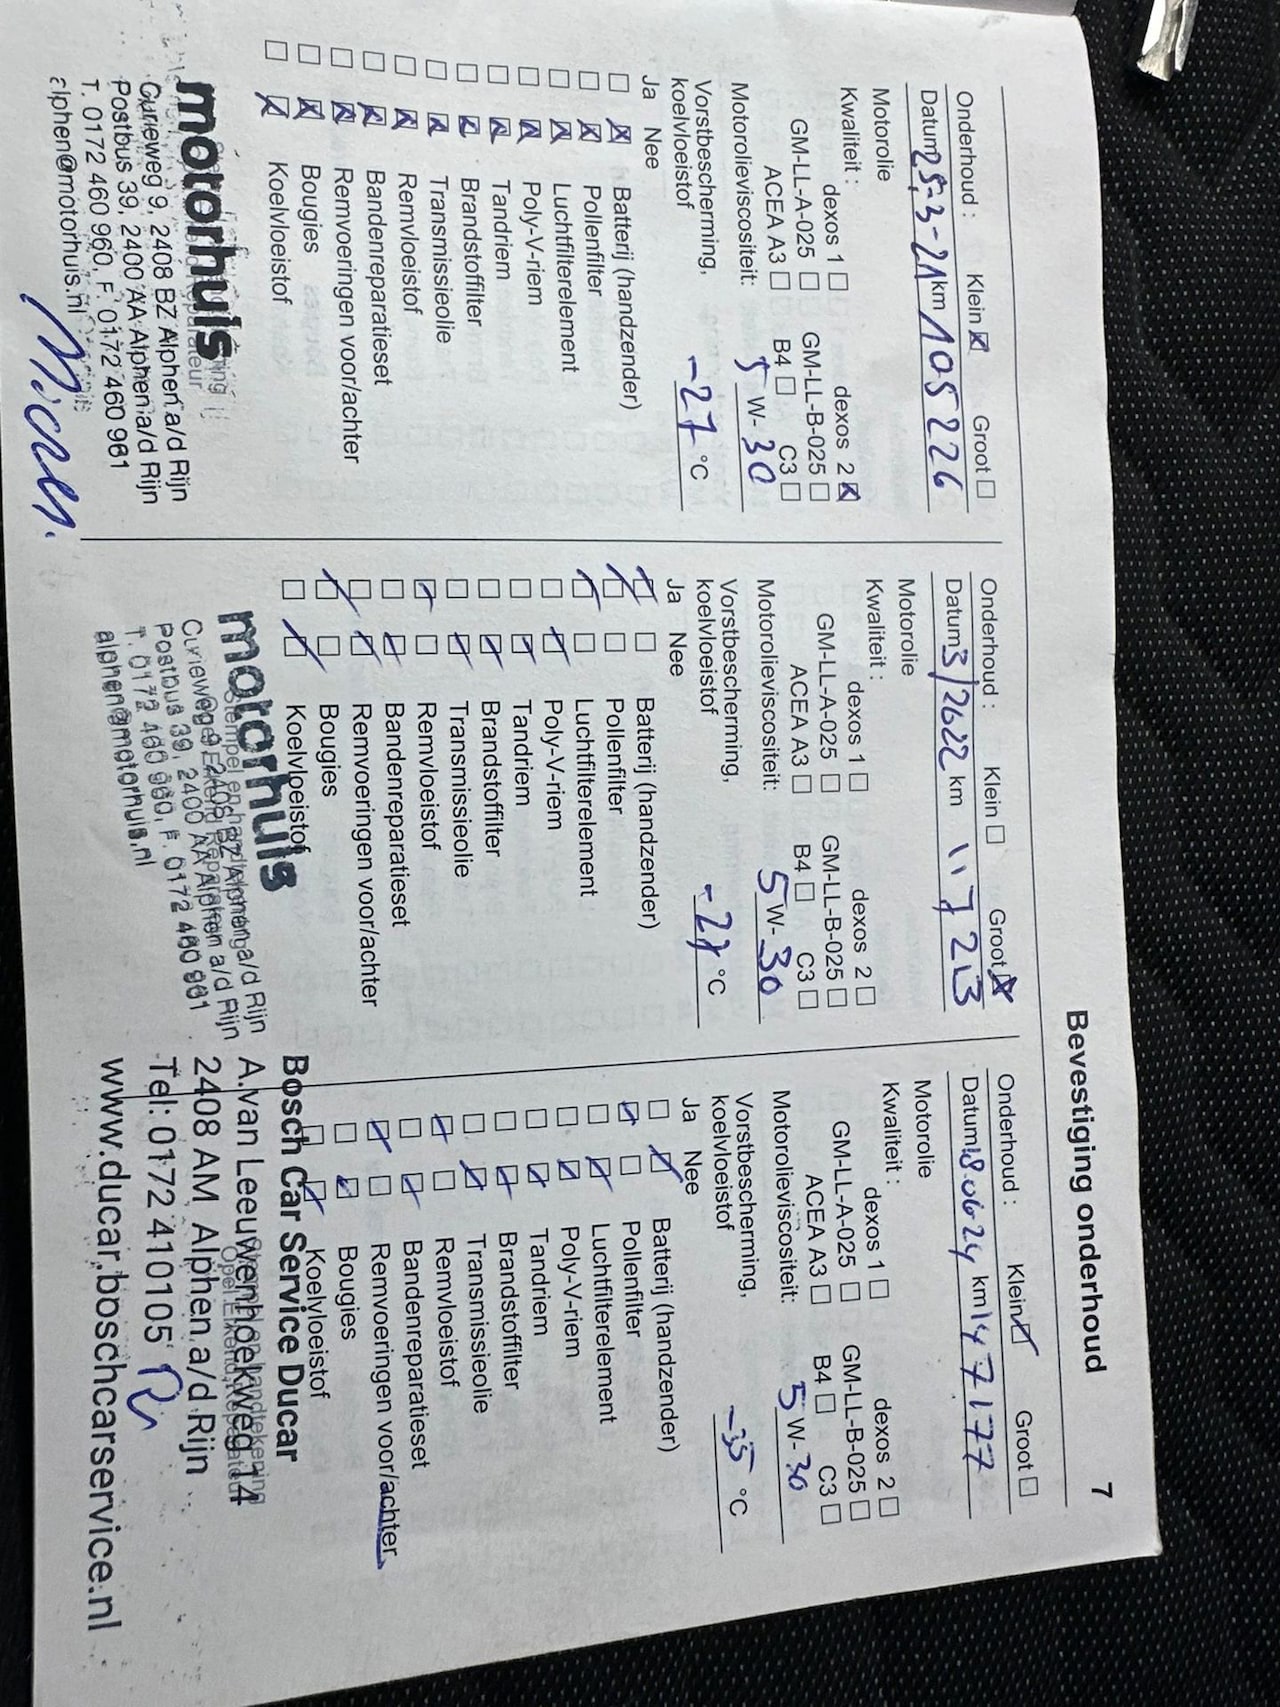 Bevestiging onderhoud 7
Onderhoud : Klein ☒ Groot ☐
Datum 25-3-21 km 105226
Motorolie
Kwaliteit : dexos 1 ☐ dexos 2 ☒
GM-LL-A-025 ☐ GM-LL-B-025 ☐
ACEA A3 ☐ B4 ☐ C3 ☐
Motorolieviscositeit: 5 W- 30
Vorstbescherming,
koelvloeistof -27 °C
Ja Nee
☐ ☒ Batterij (handzender)
☐ ☒ Pollenfilter
☐ ☒ Luchtfilterelement
☐ ☒ Poly-V-riem
☐ ☒ Tandriem
☐ ☒ Brandstoffilter
☐ ☒ Transmissieolie
☐ ☒ Remvloeistof
☐ ☒ Bandenreparatieset
☐ ☒ Remvoeringen voor/achter
☐ ☒ Bougies
☐ ☒ Koelvloeistof
motorhuis
Curieweg 9, 2408 BZ Alphen a/d Rijn
Postbus 39, 2400 AA Alphen a/d Rijn
T. 0172 460 960, F. 0172 460 961
alphen@motorhuis.nl
Onderhoud : Klein ☐ Groot ☒
Datum 3/2022 km 117213
Motorolie
Kwaliteit : dexos 1 ☐ dexos 2 ☐
GM-LL-A-025 ☐ GM-LL-B-025 ☐
ACEA A3 ☐ B4 ☐ C3 ☐
Motorolieviscositeit: 5 W- 30
Vorstbescherming,
koelvloeistof -27 °C
Ja Nee
☒ ☐ Batterij (handzender)
☒ ☐ Pollenfilter
☒ ☐ Luchtfilterelement
☐ ☒ Poly-V-riem
☐ ☒ Tandriem
☐ ☒ Brandstoffilter
☐ ☒ Transmissieolie
☒ ☐ Remvloeistof
☐ ☒ Bandenreparatieset
☐ ☒ Remvoeringen voor/achter
☒ ☐ Bougies
☐ ☒ Koelvloeistof
motorhuis
Curieweg 9, 2408 BZ Alphen a/d Rijn
Postbus 39, 2400 AA Alphen a/d Rijn
T. 0172 460 960, F. 0172 460 961
alphen@motorhuis.nl
Onderhoud : Klein ☒ Groot ☐
Datum 18.06.24 km 147177
Motorolie
Kwaliteit : dexos 1 ☐ dexos 2 ☐
GM-LL-A-025 ☐ GM-LL-B-025 ☐
ACEA A3 ☐ B4 ☐ C3 ☐
Motorolieviscositeit: 5 W- 30
Vorstbescherming,
koelvloeistof -35 °C
Ja Nee
☐ ☒ Batterij (handzender)
☒ ☐ Pollenfilter
☐ ☒ Luchtfilterelement
☐ ☒ Poly-V-riem
☐ ☒ Tandriem
☐ ☒ Brandstoffilter
☐ ☒ Transmissieolie
☒ ☐ Remvloeistof
☐ ☒ Bandenreparatieset
☒ ☐ Remvoeringen voor/achter
☐ ☒ Bougies
☐ ☒ Koelvloeistof
Bosch Car Service Ducar
A. van Leeuwenhoekweg 14
2408 AM Alphen a/d Rijn
Tel: 0172 410105
www.ducar.boschcarservice.nl